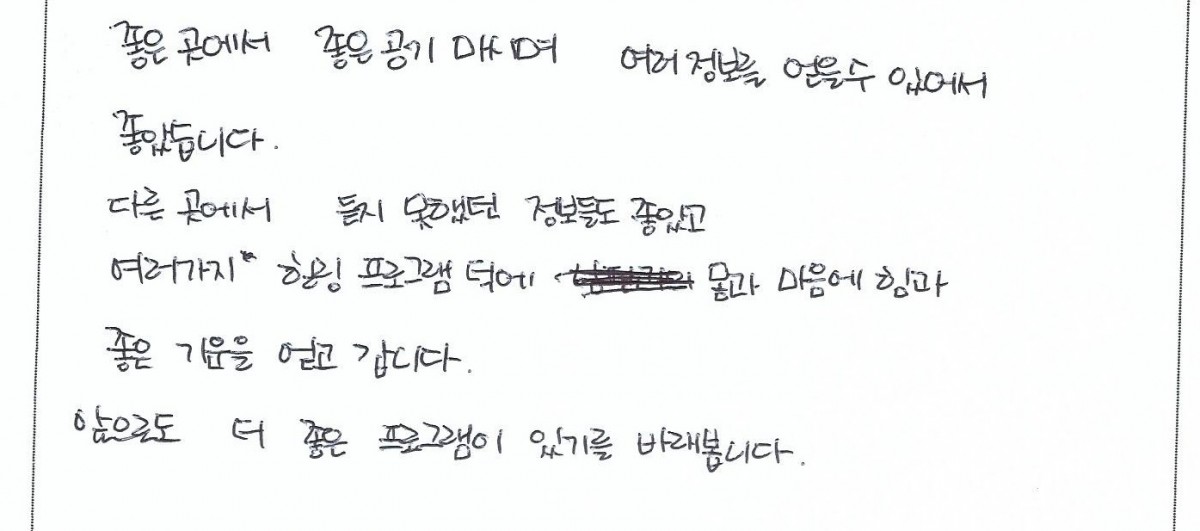 좋은 곳에서 좋은 공기 마시며 여러 정보를 얻을수 있어서
좋았습니다.
다른 곳에서 듣지 못했던 정보들도 좋았고
여러가지 힐링 프로그램 덕에 몸과 마음에 힘과
좋은 기운을 얻고 갑니다.
앞으로도 더 좋은 프로그램이 있기를 바래봅니다.